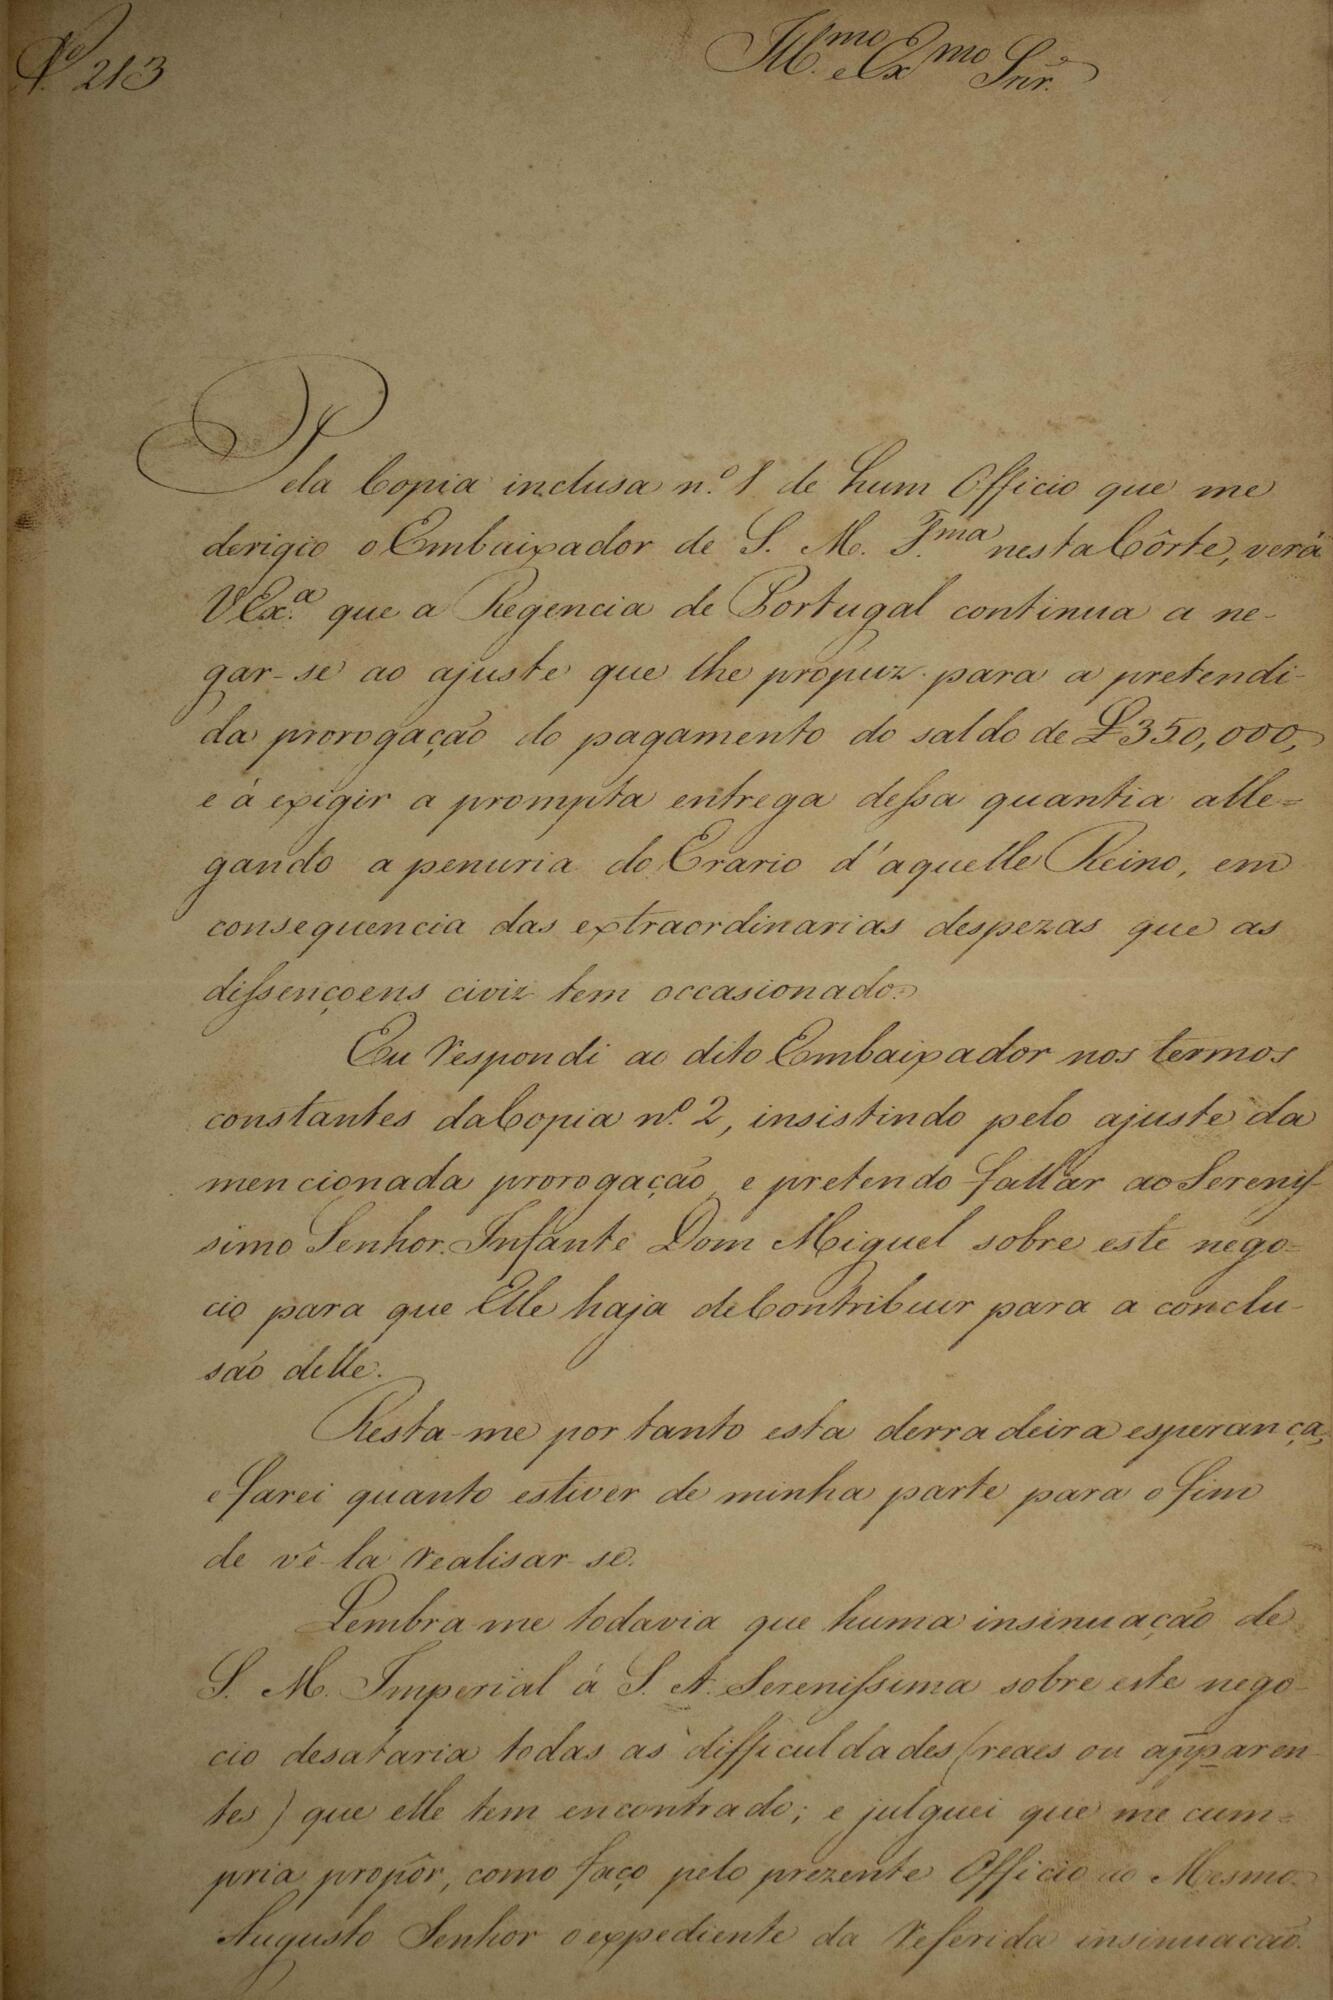 N.º 213
Ill.mo e Ex.mo Snr.
Pela Copia inclusa n.º 1 de hum Officio que me
derigio o Embaixador de S. M. F.ma nesta Côrte, verá
V Ex.a que a Regencia de Portugal continua a ne-
gar-se ao ajuste que lhe propuz para a pretendi-
da prorogação do pagamento do saldo de £350,000,
e á exigir a prompta entrega dessa quantia alle=
gando a penuria do Erario d'aquelle Reino, em
consequencia das extraordinarias despezas que as
dissençoens civiz tem occasionado.
Eu respondi ao dito Embaixador nos termos
constantes da Copia n.º 2, insistindo pelo ajuste da
mencionada prorogação, e pretendo fallar ao Serenis-
simo Senhor Infante Dom Miguel sobre este nego=
cio para que Elle haja de Contribuir para a conclu-
são delle.
Resta-me por tanto esta derradeira esperança,
e farei quanto estiver de minha parte para o fim
de vê-la realisar-se.
Lembra-me todavia que huma insinuação de
S. M. Imperial á S. A. Serenissima sobre este nego-
cio desataria todas as difficuldades (reaes ou apparen-
tes) que elle tem encontrado; e julguei que me cum=
pria propôr, como faço pelo prezente Officio ao Mesmo
Augusto Senhor o expediente da referida insinuacão.